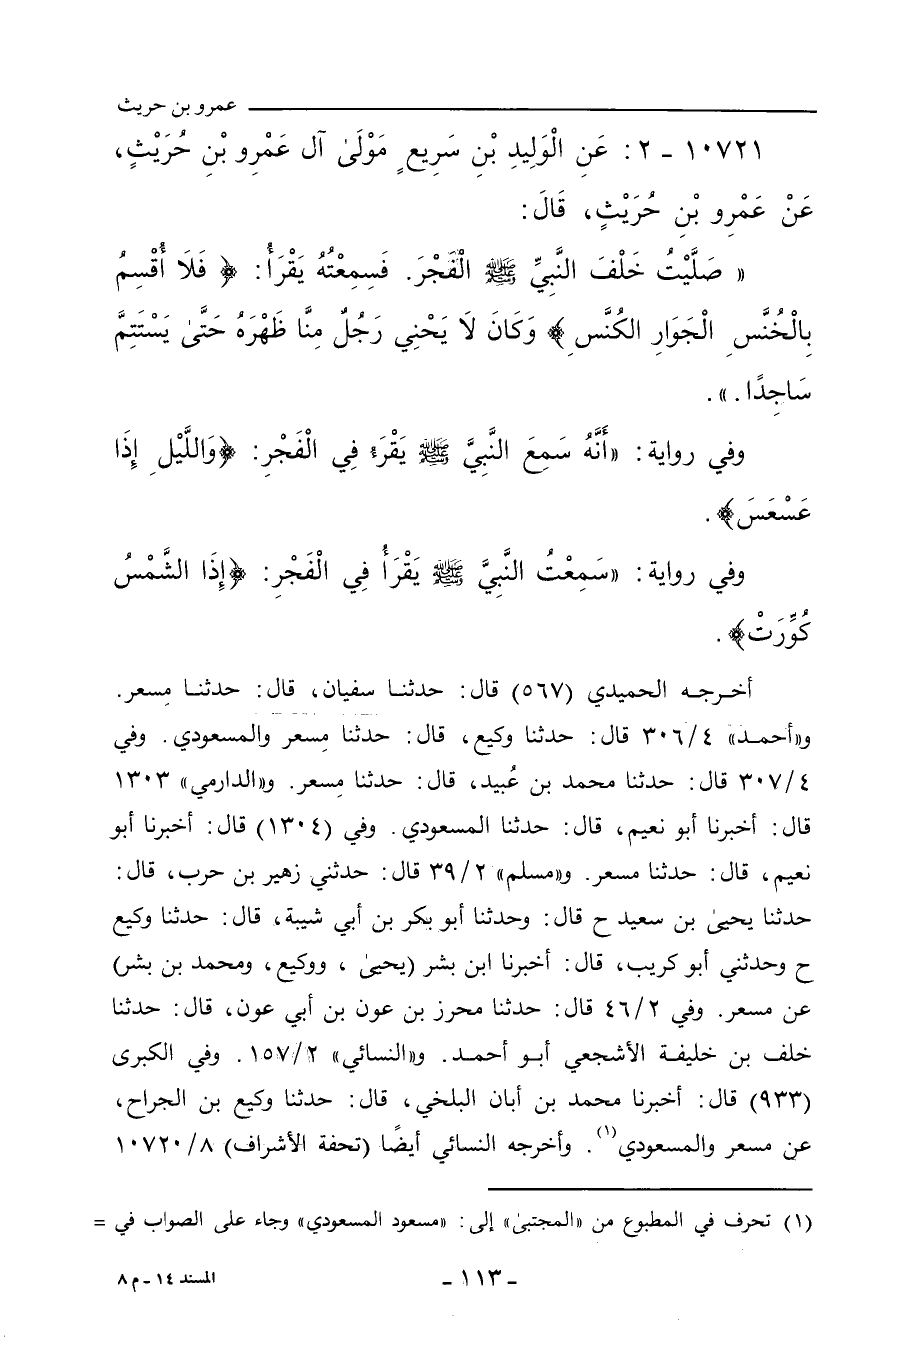 عمرو بن حريث
١٠٧٢١ ـ ٢ : عَنِ الْوَلِيدِ بْنِ سَرِيعٍ مَوْلَىٰ آل عَمْرِو بْنِ حُرَيْثٍ،
عَنْ عَمْرِو بْنِ حُرَيْثٍ، قَالَ:
« صَلَّيْتُ خَلْفَ النَّبِيِّ ﷺ الْفَجْرَ. فَسِمِعْتُهُ يَقْرَأُ: ﴿ فَلَا أُقْسِمُ
بِالْخُنَّسِ الْجَوَارِ الكُنَّسِ ﴾ وَكَانَ لَا يَحْنِي رَجُلٌ مِنَّا ظَهْرَهُ حَتَّىٰ يَسْتَتِمَّ
سَاجِدًا . ».
وفي رواية: «أَنَّهُ سَمِعَ النَّبِيَّ ﷺ يَقْرَءُ فِي الْفَجْرِ: ﴿وَاللَّيْلِ إِذَا
عَسْعَسَ﴾.
وفي رواية: «سَمِعْتُ النَّبِيَّ ﷺ يَقْرَأُ فِي الْفَجْرِ: ﴿إِذَا الشَّمْسُ
كُوِّرَتْ﴾.
أخرجه الحميدي (٥٦٧) قال: حدثنا سفيان، قال: حدثنا مِسعر.
و«أحمد» ٣٠٦/٤ قال: حدثنا وكيع، قال: حدثنا مِسعر والمسعودي. وفي
٣٠٧/٤ قال: حدثنا محمد بن عُبيد، قال: حدثنا مسعر. و«الدارمي» ١٣٠٣
قال: أخبرنا أبو نعيم، قال: حدثنا المسعودي. وفي (١٣٠٤) قال: أخبرنا أبو
نعيم، قال: حدثنا مسعر. و«مسلم» ٣٩/٢ قال: حدثني زهير بن حرب، قال:
حدثنا يحيىٰ بن سعيد ح قال: وحدثنا أبو بكر بن أبي شيبة، قال: حدثنا وكيع
ح وحدثني أبو كريب، قال: أخبرنا ابن بشر (يحيىٰ ، ووكيع، ومحمد بن بشر)
عن مسعر. وفي ٤٦/٢ قال: حدثنا محرز بن عون بن أبي عون، قال: حدثنا
خلف بن خليفة الأشجعي أبو أحمد. و«النسائي» ١٥٧/٢. وفي الكبرى
(٩٣٣) قال: أخبرنا محمد بن أبان البلخي، قال: حدثنا وكيع بن الجراح،
عن مسعر والمسعودي(١). وأخرجه النسائي أيضًا (تحفة الأشراف) ١٠٧٢٠/٨
(١) تحرف في المطبوع من «المجتبىٰ» إلى: «مسعود المسعودي» وجاء على الصواب في =
ـ ١١٣ ـ
المسند ١٤ ـ م ٨